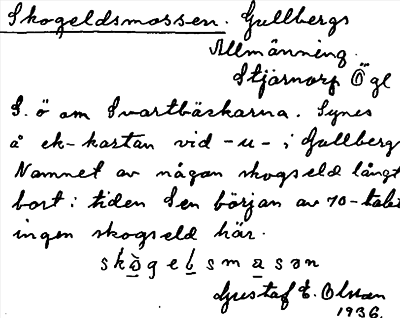 Skogeldsmossen. Gullbergs
Allmänning.
Stjärnorp Ögl
S. ö om Svartbäckarna. Synes
å ek-kartan vid -u- i Gullberg
Namnet av någon skogseld långt
bort i tiden Sen början av 70-talet
ingen skogseld här.
skògelsmasan
Gustaf E. Olsson
1936.